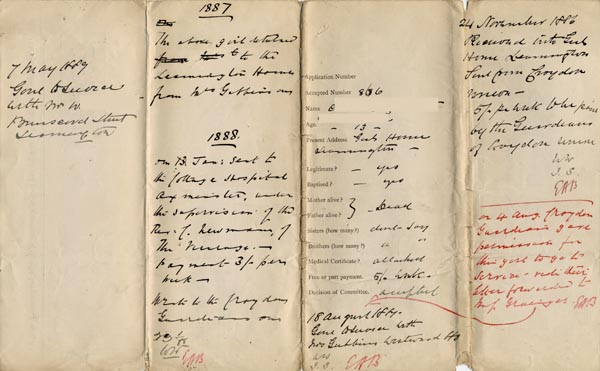 7 May 1889
Gone to Service
with Mrs W.
Brunswick Street
Leamington
1887
The above girl returned
from to the
Leamington Home
from Mrs Gubbins on
1888.
on 13. Jan: sent to
the Cottage Hospital
Axminster, under
the supervision of the
Rev. C. Newmann, of
The Vicarage.
Payment 3/- per
week -
Wrote to the Croydon
Guardians on
EAB
Application Number
Accepted Number 866
Name E
Age. - 13 -
Present Address Girls Home
Leamington -
Legitimate? - yes
Baptised? - yes
Mother alive? } Dead
Father alive?
Sisters (how many?) dont say
Brothers (how many?) "
Medical Certificate? attached
Free or part payment. 5/- week -
Decision of Committee. accepted
18 August 1887.
Gone to Service with
Mrs Gubbins Westwood
EAB
24 November 1886
Received into Girls
Home Leamington
Sent from Croydon
Union -
5/- per week to be paid
by the Guardians
of Croydon Union
EAB
on 4 Aug. Croydon
Guardians gave
permission for
this girl to go to
service - vide their
letter forwarded to
EAB